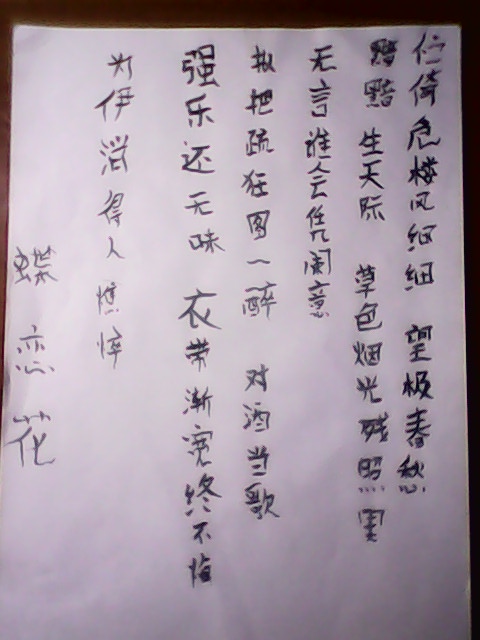 伫倚危楼风细细 望极春愁
黯黯 生天际 草色烟光残照里
无言谁会凭阑意
拟把疏狂图一醉 对酒当歌
强乐还无味 衣带渐宽终不悔
为伊消得人憔悴
蝶恋花